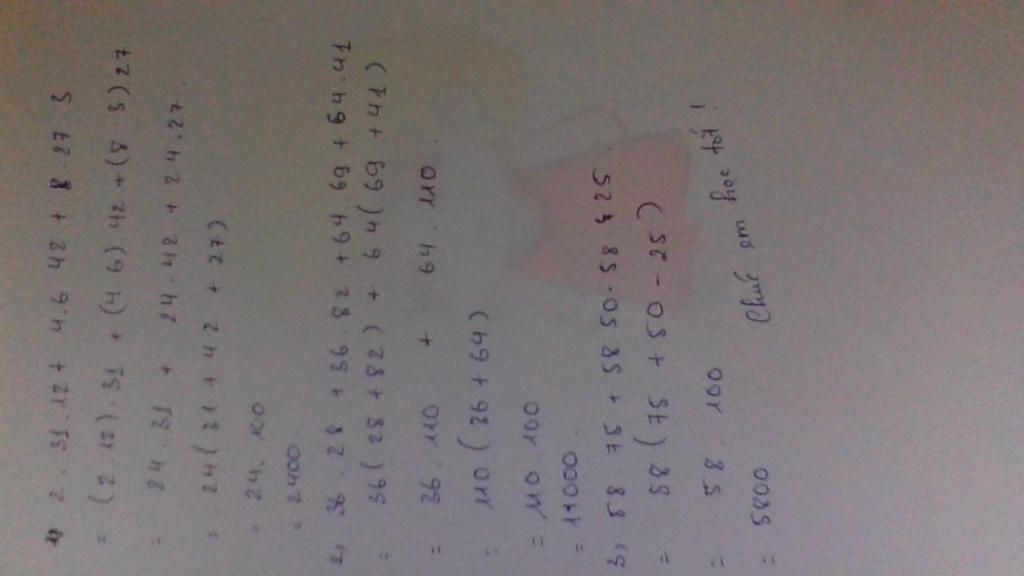 1) 2 . 31 . 12 + 4 . 6 42 + 8 27 3
= (2 12) . 31 + (4 6) 42 + (8 3) 27
= 24 . 31 + 24 . 42 + 24 . 27 .
= 24 ( 31 + 42 + 27)
= 24 . 100
= 2400
2, 36 . 28 + 36 . 82 + 64 . 69 + 64 . 41
= 36 ( 28 + 82 ) + 64 ( 69 + 41 )
= 36 . 110 + 64 . 110 .
= 110 ( 36 + 64 )
= 110 . 100
= 11000
3, 58 75 + 58 50 - 58 25
= 58 ( 75 + 50 - 25 )
= 58 . 100
= 5800 Chúc em học tốt !